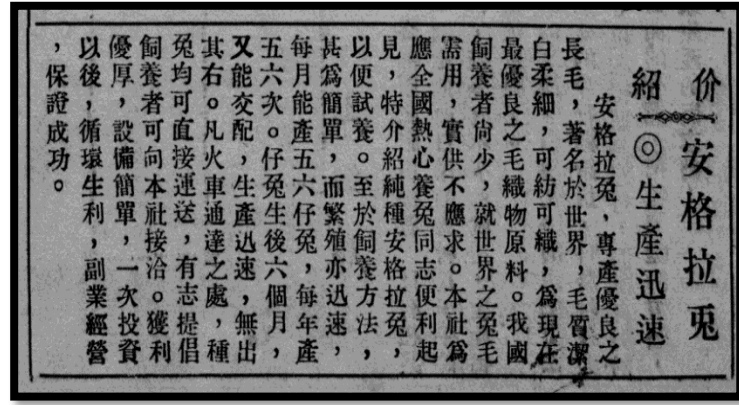 价紹
安格拉兎
◎生產迅速
安格拉兔,專產優良之
長毛,著名於世界,毛質潔
白柔細,可紡可織,爲現在
最優良之毛織物原料。我國
飼養者尙少,就世界之兔毛
需用,實供不應求。本社爲
應全國熱心養兔同志便利起
見,特介紹純種安格拉兔,
以便試養。至於飼養方法,
甚爲簡單,而繁殖亦迅速,
每月能產五六仔兔,每年產
五六次。仔兔生後六個月,
又能交配,生產迅速,無出
其右。凡火車通達之處,種
兔均可直接運送,有志提倡
飼養者可向本社接洽。獲利
優厚,設備簡單,一次投資
以後,循環生利,副業經營
,保證成功。